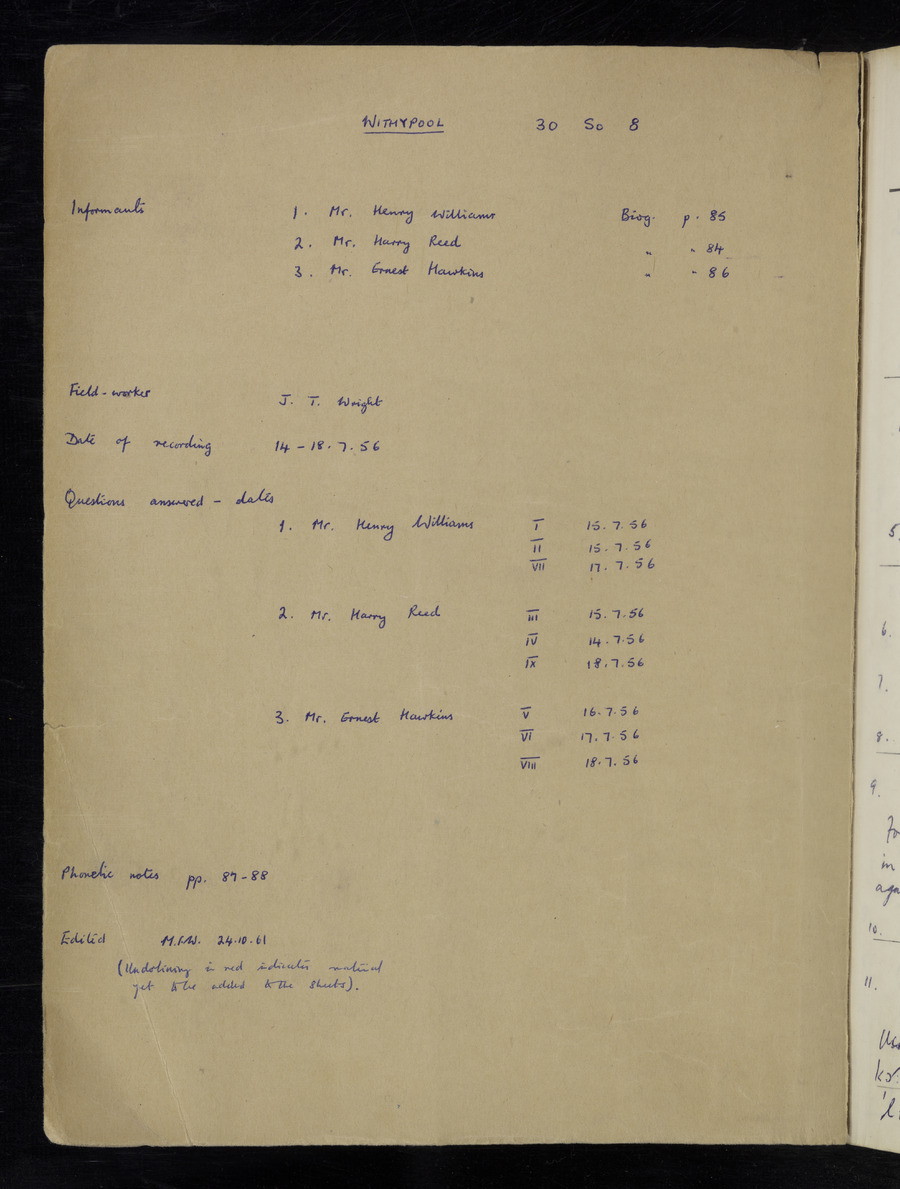 WITHYPOOL 30 So 8
Informants 1. Mr. Henry Williams Biog. p. 85
2. Mr. Harry Reed " " 84
3. Mr. Ernest Hawkins " " 86
Field-worker J. T. Wright
Date of recording 14 - 18. 7. 56
Questions answered - dates
1. Mr. Henry Williams I 15. 7. 56
II 15. 7. 56
VII 17. 7. 56
2. Mr. Harry Reed III 15. 7. 56
IV 14. 7. 56
IX 18. 7. 56
3. Mr. Ernest Hawkins V 16. 7. 56
VI 17. 7. 56
VIII 18. 7. 56
Phonetic notes pp. 87-88
Edited M.F.W. 24.10.61
(Underlining in red indicates material
yet to be added to the sheets).
5.
6.
7.
8.
9.
in
10.
11.